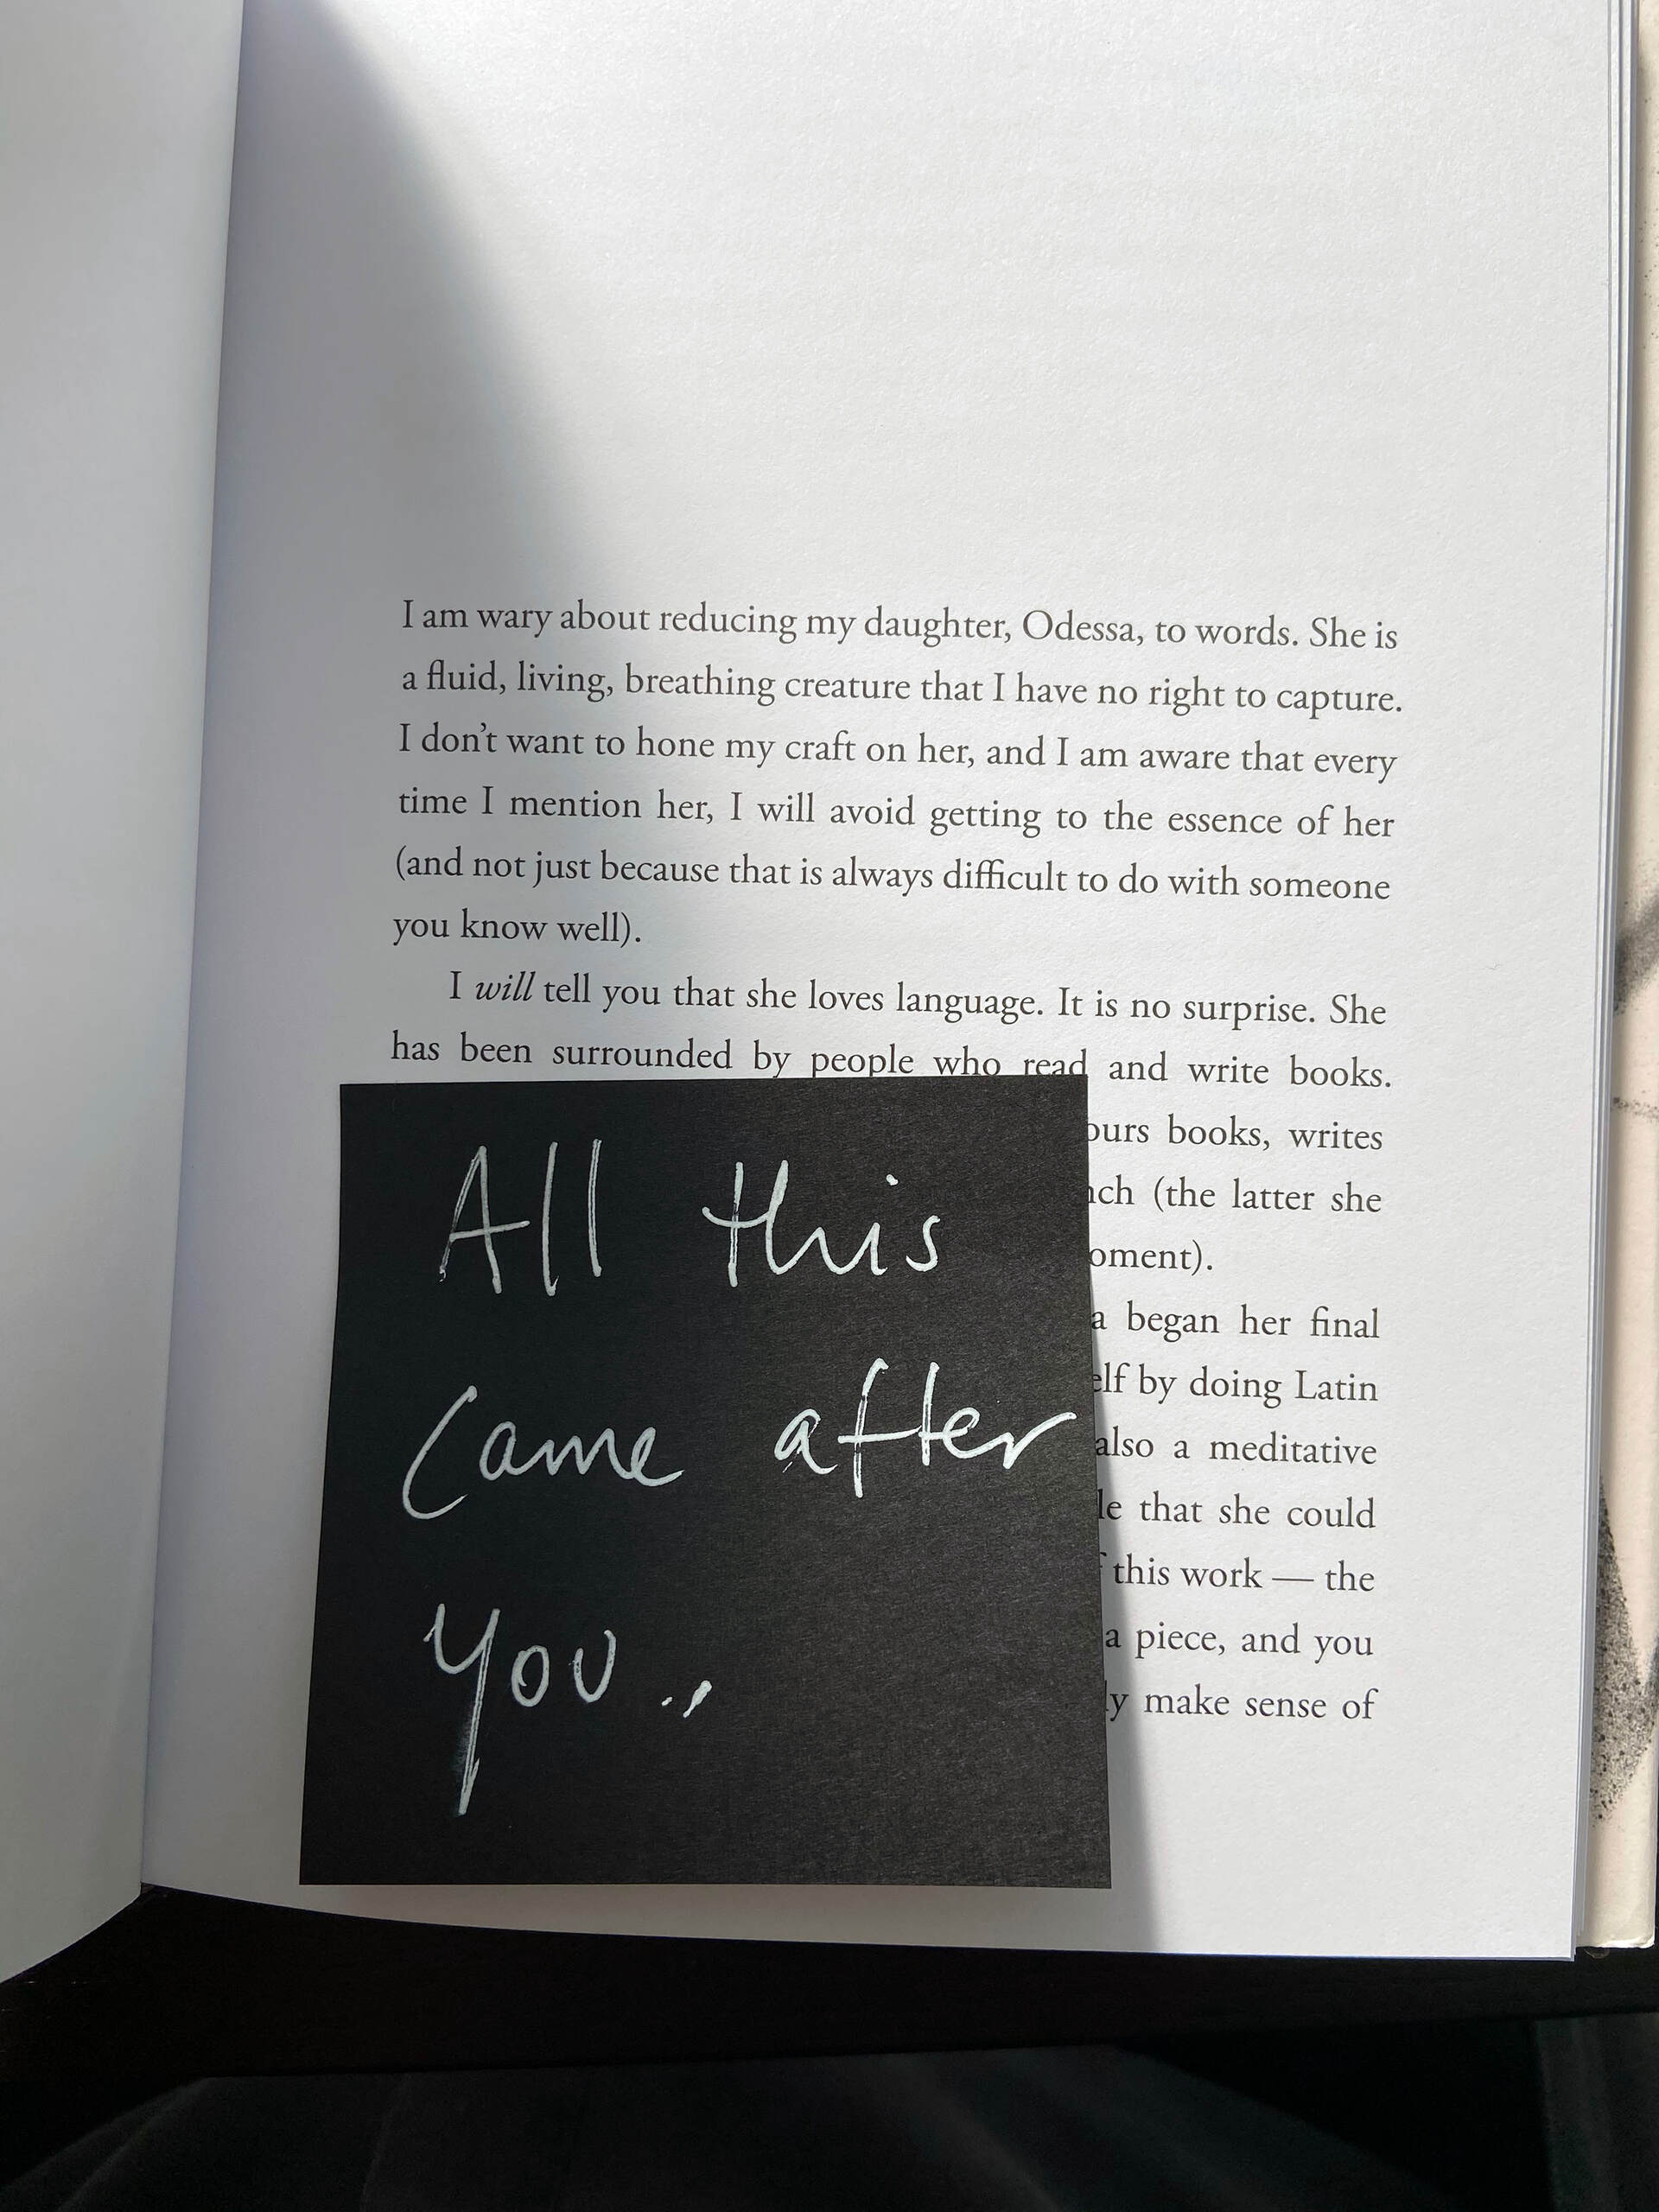 I am wary about reducing my daughter, Odessa, to words. She is
a fluid, living, breathing creature that I have no right to capture.
I don’t want to hone my craft on her, and I am aware that every
time I mention her, I will avoid getting to the essence of her
(and not just because that is always difficult to do with someone
you know well).
I will tell you that she loves language. It is no surprise. She
has been surrounded by people who read and write books.
books, writes
(the latter she
began her final
by doing Latin
also a meditative
that she could
this work — the
a piece, and you
make sense of
All this
Came after
You .,